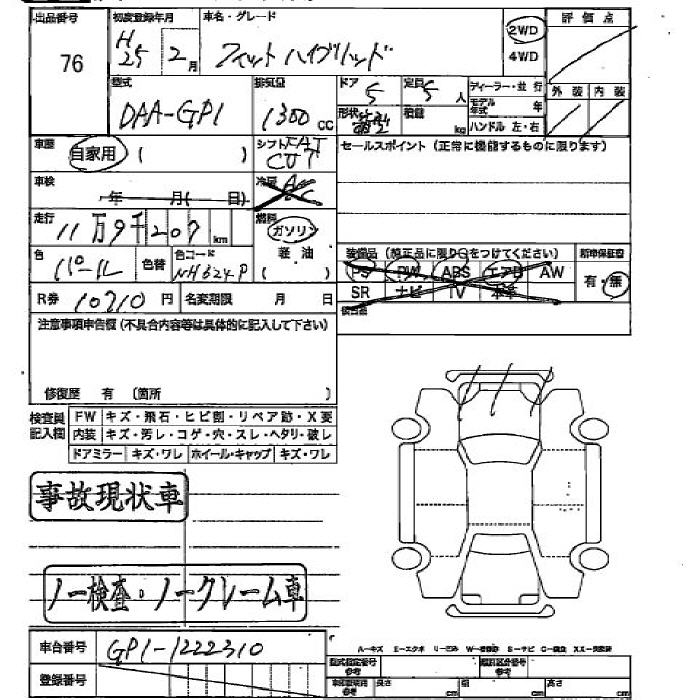 出品番号 初度登録年月 車名・グレード 評価点
76 H25 2月 フィットハイブリッド 2WD
4WD
型式 排気量 ドア 定員 ディーラー・並行 外装 内装
DAA-GP1 1300cc 5 5人 モデル年式 年
形状 積載 kg ハンドル 左・右
車歴 自家用 ( ) シフト FAT CVT セールスポイント (正常に機能するものに限ります)
車検 年 月( 日) 冷房 AC
走行 11万9千207km 燃料 ガソリン
軽油
( )
色 パール 色替 色コード NH624P
装備品 (純正品に限り○をつけてください) 新車保証書
PS PW ABS エアB AW 有・無
SR ナビ TV 本革
R券 10710円 名変期限 月 日
注意事項申告欄(不具合内容等は具体的に記入して下さい)
修復歴 有 〔箇所 〕
検査員記入欄 FW キズ・飛石・ヒビ割・リペア跡・X要
内装 キズ・汚レ・コゲ・穴・スレ・ヘタリ・破レ
ドアミラー キズ・ワレ ホイール・キャップ キズ・ワレ
事故現状車
ノー検査・ノークレーム車
車台番号 GP1-1222310
A-キズ E-エクボ
型式指定番号 参考 類別区分番号 参考
登録番号 参考 長さ cm 幅 cm 高さ cm